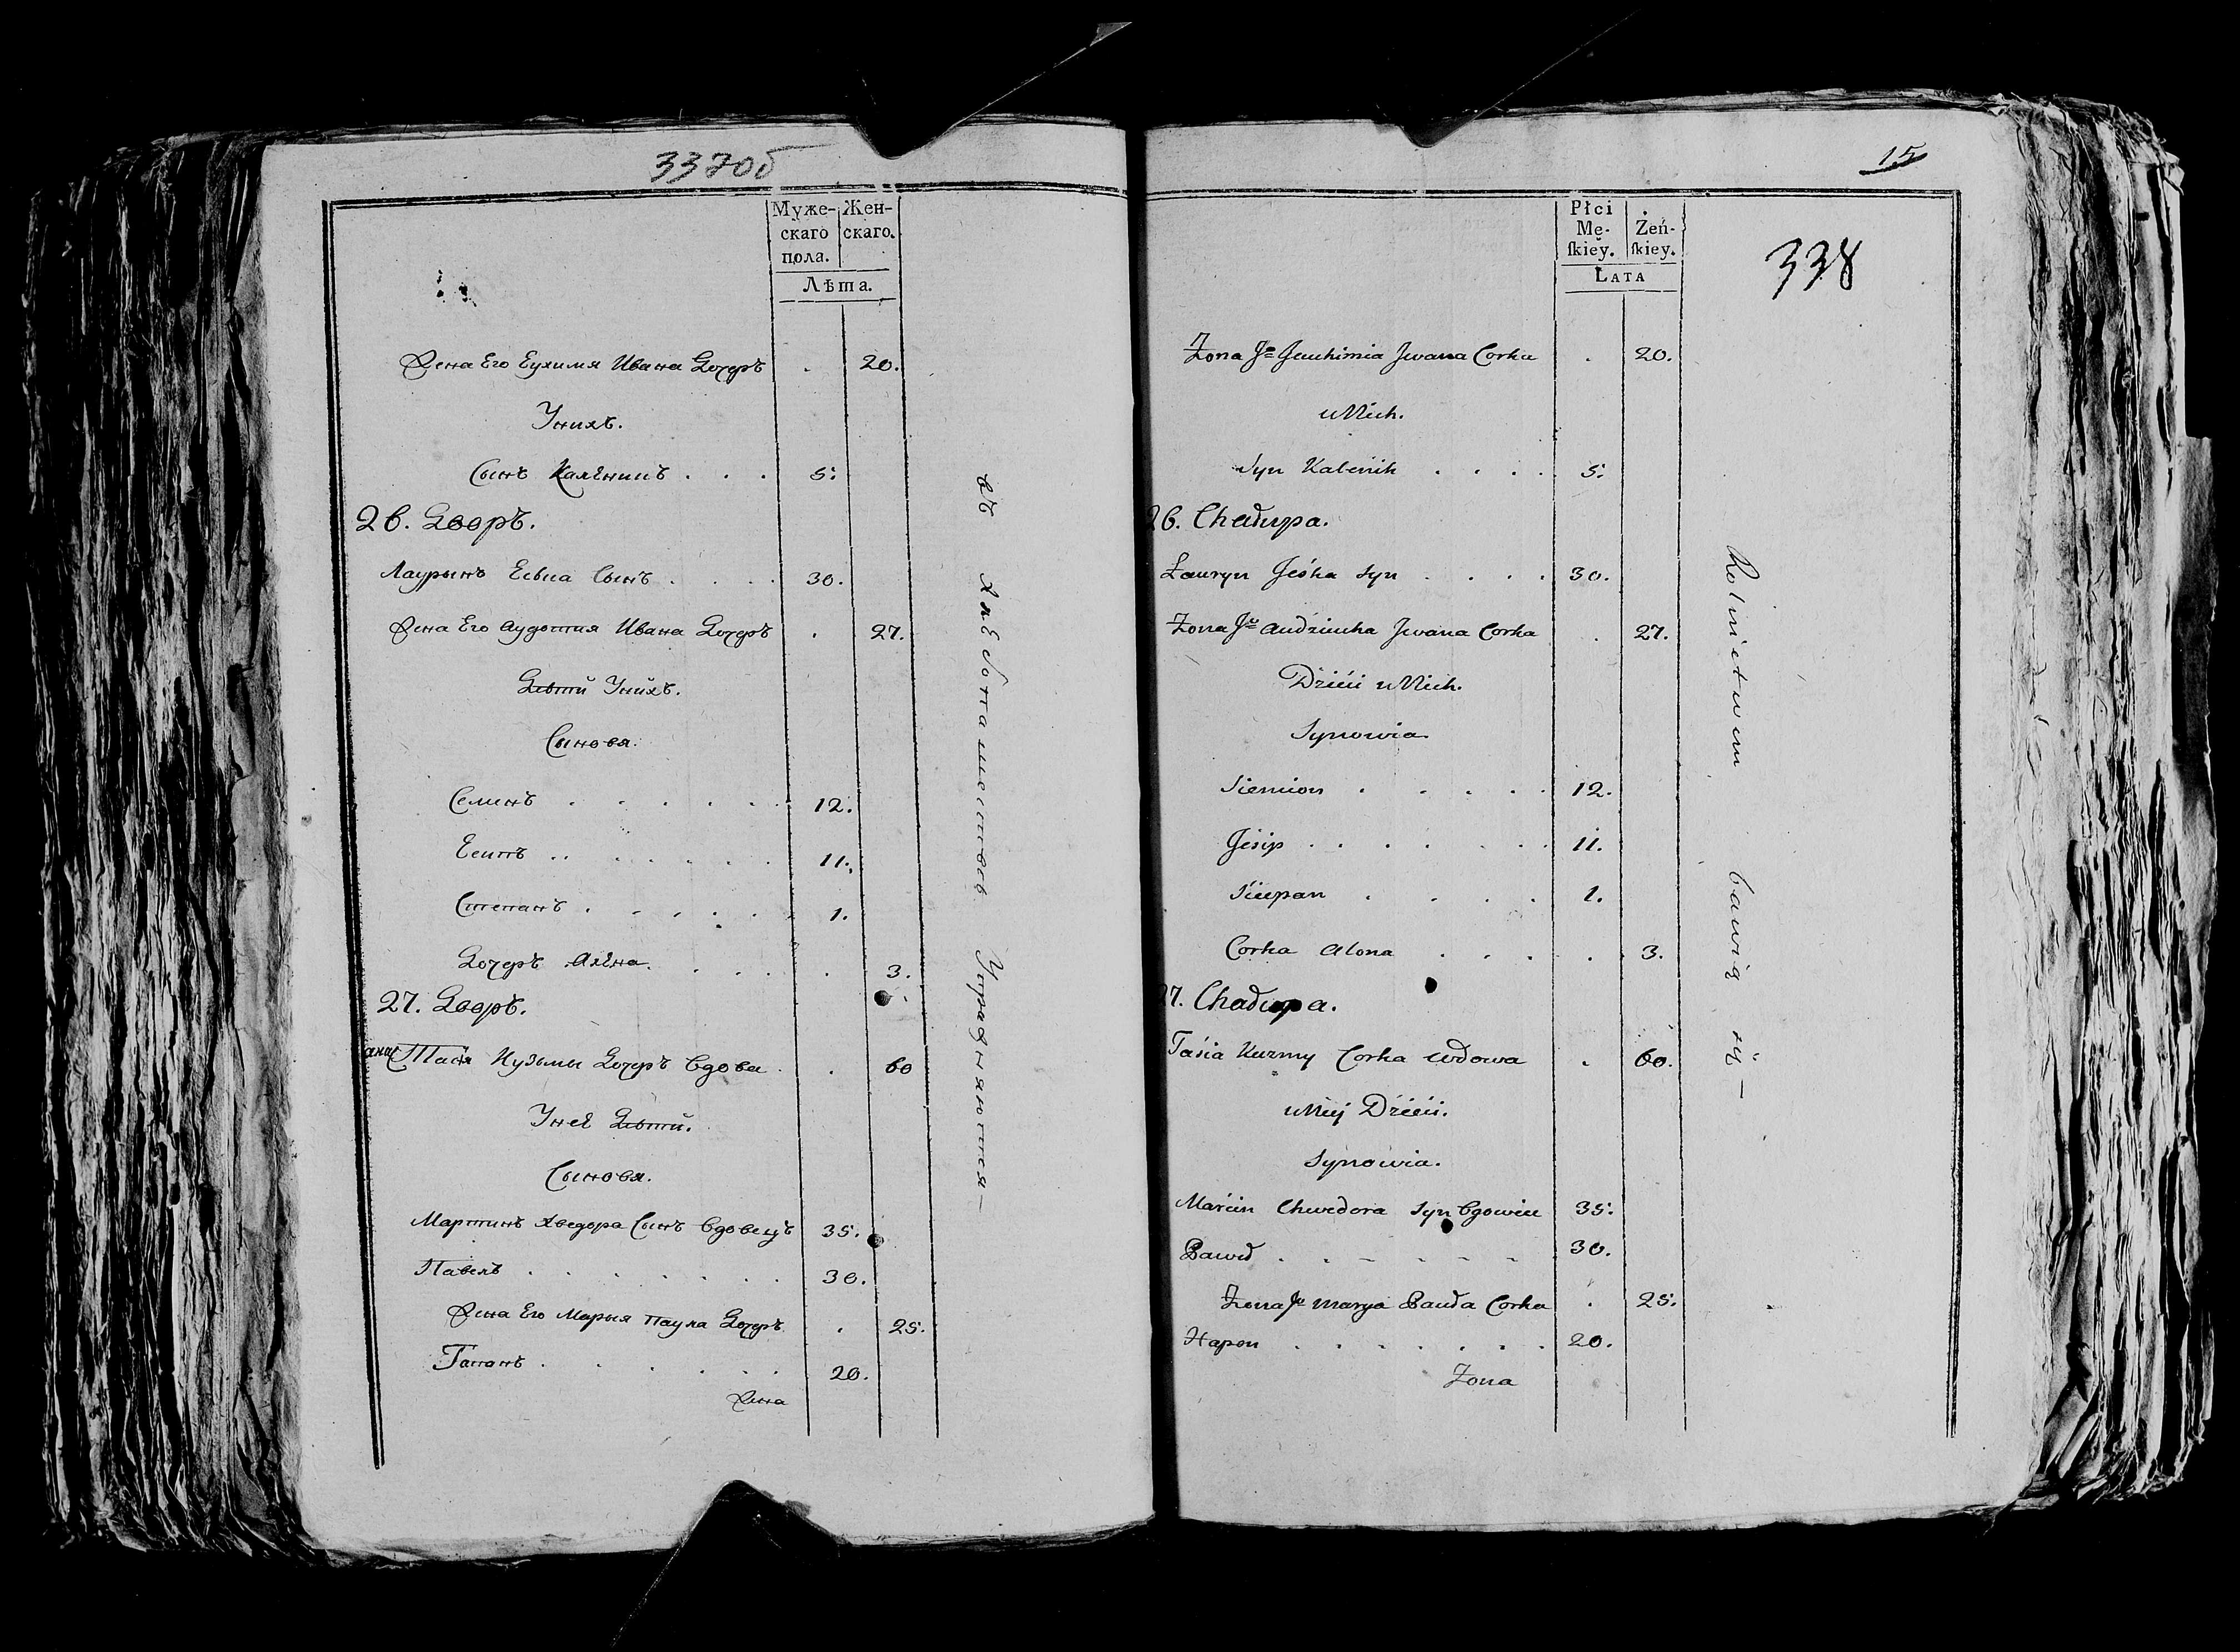 337об
Муже-
скаго
пола.
Жен-
скаго.
Лѣта.
Жена Его Еухимя Ивана Дочеръ . 20.
Унихъ.
Сынъ Калѣникъ . . . 5.
26. Дворъ.
Лаурынъ Еська Сынъ . . . . 30.
Жена Его Аудотия Ивана Дочеръ . 27.
Дѣти Унихъ.
Сыновя.
Семинъ . . . . . 12.
Есипъ . . . . . . 11.
Степанъ . . . . . 1.
Дочеръ Алѣна . . . . 3.
27. Дворъ.
Тася Кузьмы Дочеръ Вдова . . 60
Унеѣ Дѣти.
Сыновя.
Мартинъ Хведора Сынъ Вдовецъ 35.
Павелъ . . . . . . . 30.
Жена Его Марыя Паула Дочеръ . 25.
Гапонъ . . . . . . 20.
Жена
въ хлѣбопашествѣ Упражняются —
15
338
Płci
Mę-
ſkiey.
Żeń-
ſkiey.
LATA
Żona Jº Jeuchimia Jwana Corka . 20.
u Nich.
Syn Kalenik . . . . 5.
26. Chadupa.
Łauryn Jeśka Syn . . . . 30.
Żona Jº Audziucha Jwana Corka . 27.
Dzieci u Nich.
Synowia
Siemion . . . . . 12.
Jesip . . . . . . . 11.
Sciepan . . . . 1.
Corka Alona . . . . 3.
27. Chadupa.
Tasia Kuzmy Corka wdowa . 60.
u Niej Dzieci.
Synowia.
Marcin Chwedora Syn 35.
Paweł . . . . . . 30.
Żona Jº Marya Pauła Corka . 25.
Hapon . . . . . . . 20.
Żona
Rolnictwem bawią się —